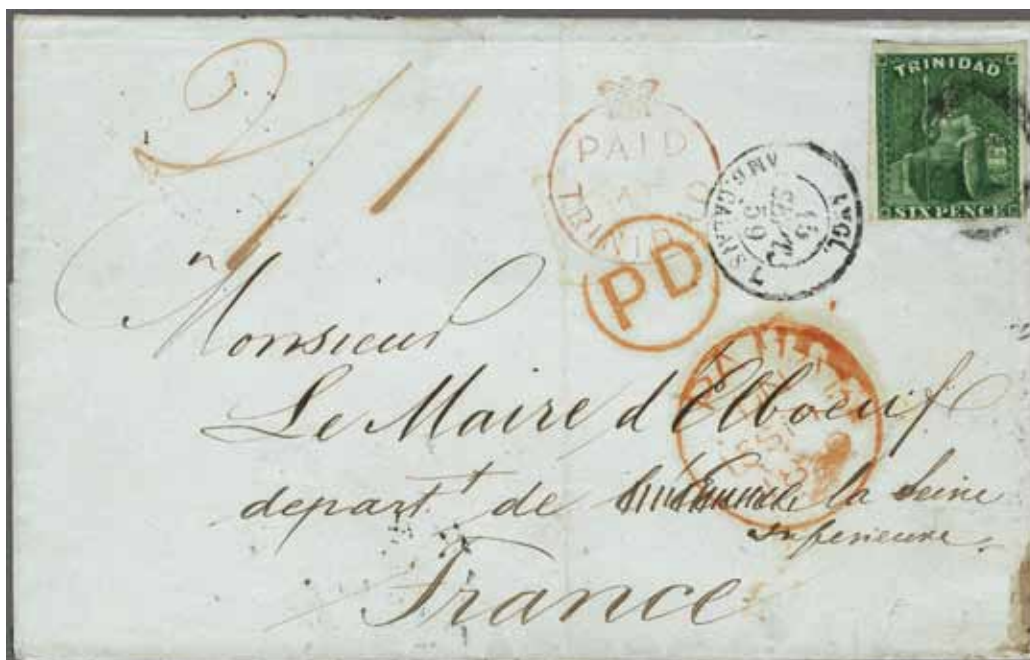 TRINIDAD
SIX PENCE
PAID
TRINIDAD
ANGL.
AMB. CALAIS
15
59
PD
Monsieur
Le Maire d'Elboeuf
depart^t de la Seine
inferieure.
France